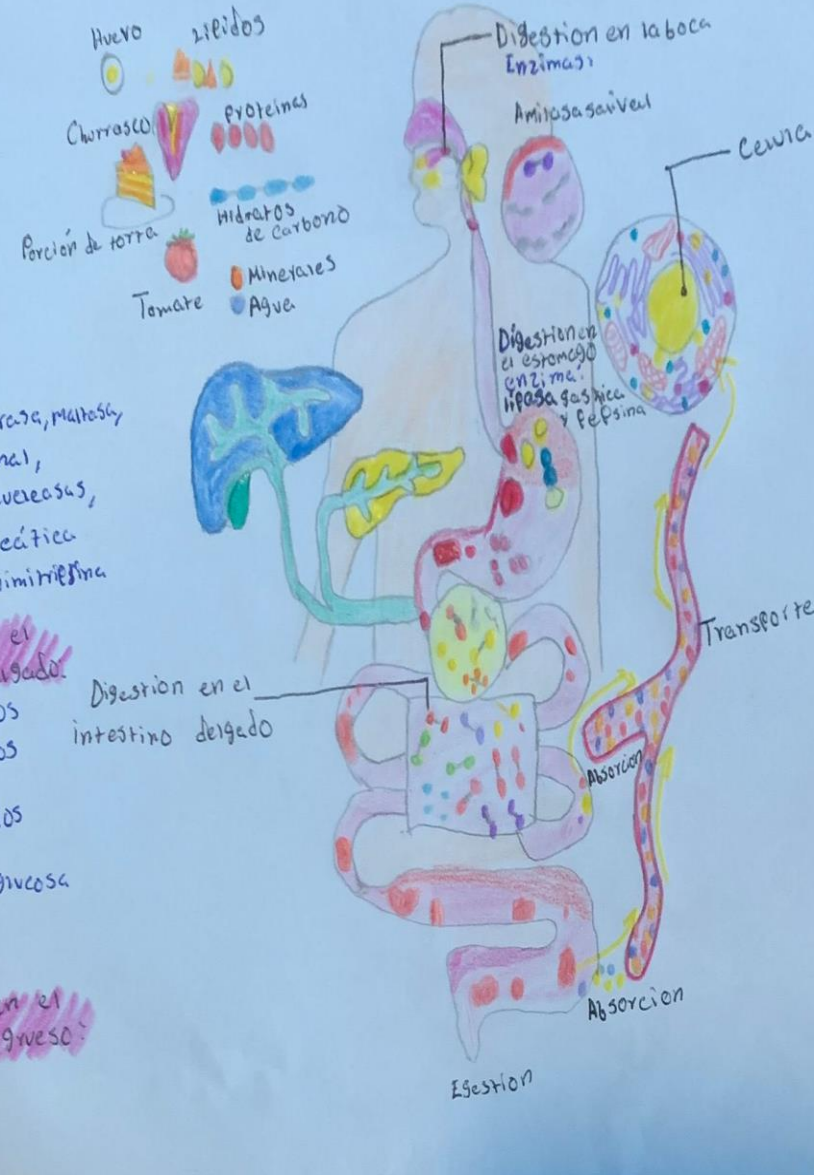 Huevo
Lipidos
Churrasco
Proteinas
Porción de torta
Hidratos
de carbono
Tomate
Minerales
Agua
Digestion en la boca
Enzimas:
Amilasa salival
Celula
Digestion en
el estomago
enzima:
lipasa gastrica
y Pepsina
rasa, maltasa,
nal,
ucleasas,
ecífica
el
lgado:
os
os
os
glucosa
en el
grueso:
Digestion en el
intestino delgado
Transporte
Absorcion
Absorcion
Egestion